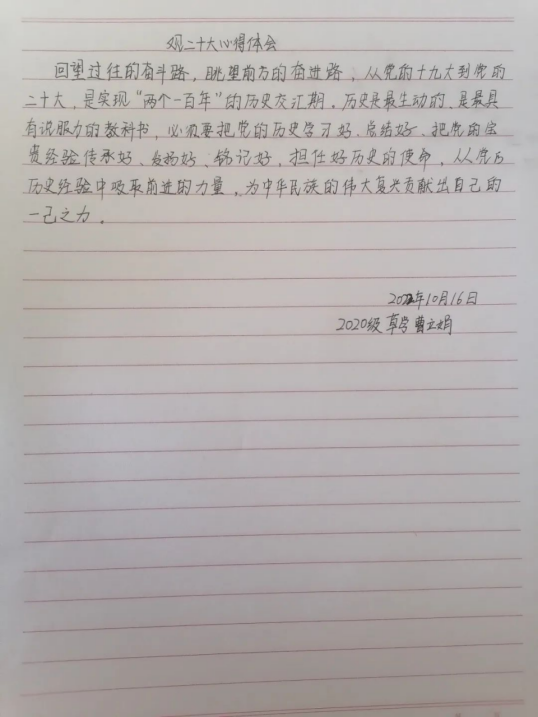 观二十大心得体会
回望过往的奋斗路，眺望前方的奋进路，从党的十九大到党的
二十大，是实现“两个一百年”的历史交汇期。历史是最生动的、是最具
有说服力的教科书，必须要把党的历史学习好、总结好、把党的宝
贵经验传承好、发扬好、铭记好，担任好历史的使命，从党的
历史经验中吸取前进的力量，为中华民族的伟大复兴贡献出自己的
一己之力。
2022年10月16日
2020级 草学 曹立娟